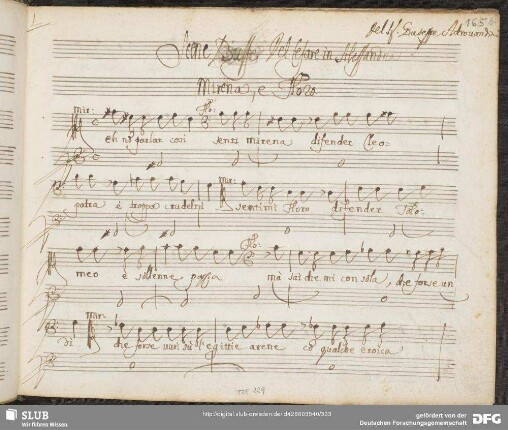 1
165
Del Sf. Giuseppe Aldrovandi
Scene Buffe Del Cesare in Alessandria
Mirena, e Floro
mir: Flo:
eh nō parlar cosi senti mirena difender Cleo-
mir:
patra è troppa crudeltà sentimi Floro difender Tolo-
Flo:
meo è sollenne pazzia mà sai che mi consola, che forse un
mir:
di che forse un di sù l'egittie arene cō qualche eroica
SLUB
Wir führen Wissen.
http://digital.slub-dresden.de/id426603540/333
gefördert von der
Deutschen Forschungsgemeinschaft
DFG